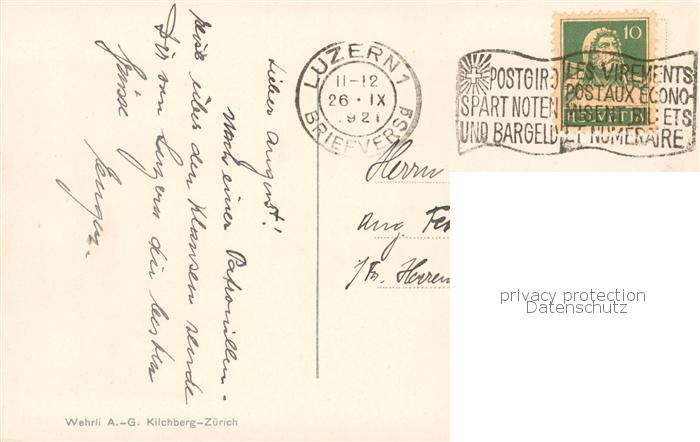 Lieber August!
Nach einer Patrouillen-
reise über den Klausen sende
Dir von Luzern die besten
Grüsse
Eugen.
LUZERN 1
11-12
26.IX
1921
BRIEFVERSD
POSTGIRO
SPART NOTEN
UND BARGELD
LES VIREMENTS
POSTAUX ÉCONO-
MISENT BILLETS
ET NUMERAIRE
10
HELVETIA
Herrn
Aug. Fe
Herren
privacy protection
Datenschutz
Wehrli A.-G. Kilchberg-Zürich